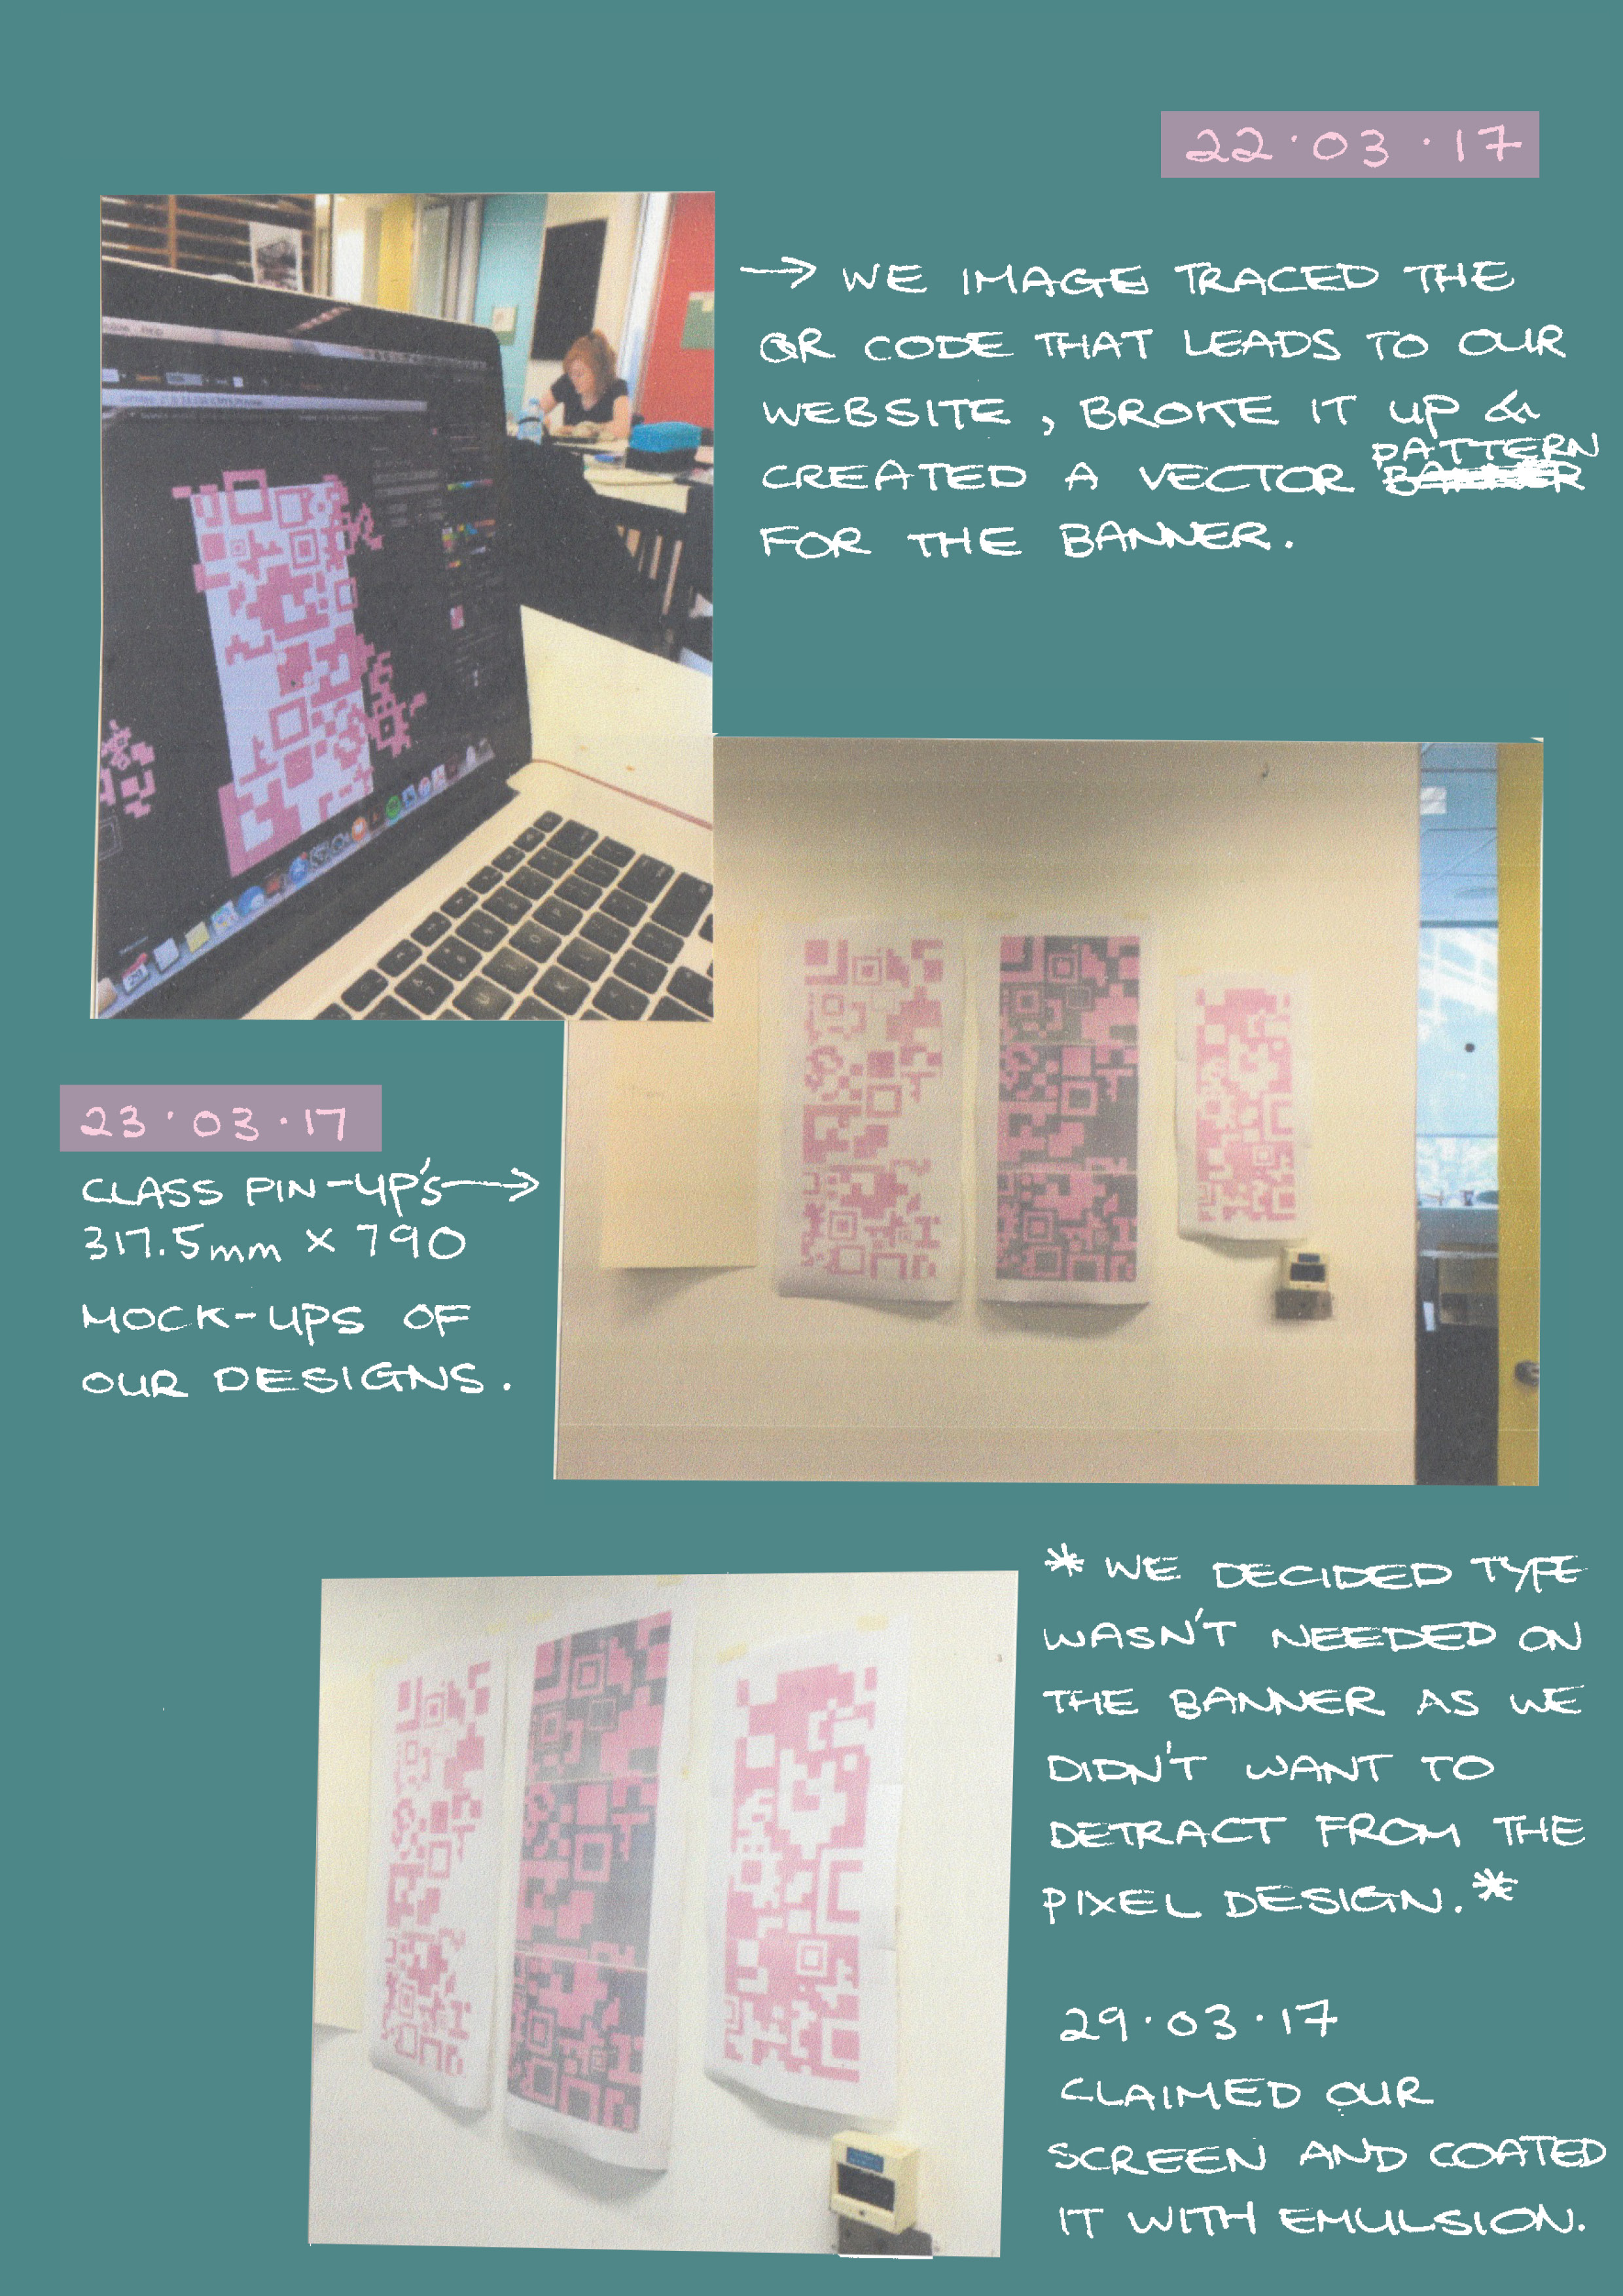 22·03·17
→ WE IMAGE TRACED THE
QR CODE THAT LEADS TO OUR
WEBSITE, BROKE IT UP &
CREATED A VECTOR PATTERN
FOR THE BANNER.
23·03·17
CLASS PIN-UP'S →
317.5mm X 790
MOCK-UPS OF
OUR DESIGNS.
* WE DECIDED TYPE
WASN'T NEEDED ON
THE BANNER AS WE
DIDN'T WANT TO
DETRACT FROM THE
PIXEL DESIGN. *
29·03·17
CLAIMED OUR
SCREEN AND COATED
IT WITH EMULSION.